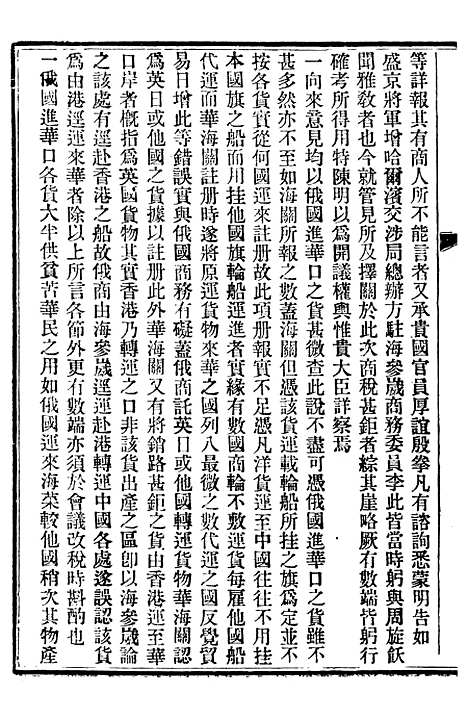 等詳報其有商人所不能言者又承貴國官員厚誼殷拳凡有諮詢悉蒙明告如
盛京將軍增哈爾濱交涉局總辦方駐海參崴商務委員李此皆當時躬與周旋飫
聞雅敎者也今就管見所及擇關於此次商稅甚鉅者綜其崖略厥有數端皆躬行
確考所得用特陳明以爲開議權輿惟貴大臣詳察焉
一向來意見均以俄國進華口之貨甚微查此說不盡可憑俄國進華口之貨雖不
甚多然亦不至如海關所報之數蓋海關但憑該貨運載輪船所挂之旗爲定並不
按各貨實從何國運來註册此項册報實不足憑凡洋貨運至中國往往不用挂
本國旗之船而用挂他國旗輪船運進者實緣有數國商輪不敷運貨每雇他國船
代運而華海關註册時遂將原運貨物來華之國列入最微之數代運之國反覺貿
易日增此等錯誤實與俄國商務有礙蓋俄商託英日或他國轉運貨物華海關認
爲英日或他國之貨據以註册此外華海關又有將銷路甚鉅之貨由香港運至華
口岸者槪指爲英國貨實香港乃轉運之口非該貨出產之區卽以海參崴論
之該處有逕赴香港之船故俄商由海參崴逕運赴港轉運中國各處遂誤認該貨
爲由港逕運來華者除以上所言各節外更有數端亦須於會議改稅時斟酌也
一俄國進華口各貨大半供貧苦華民之用如俄國運來海菜較他國稍次其物產